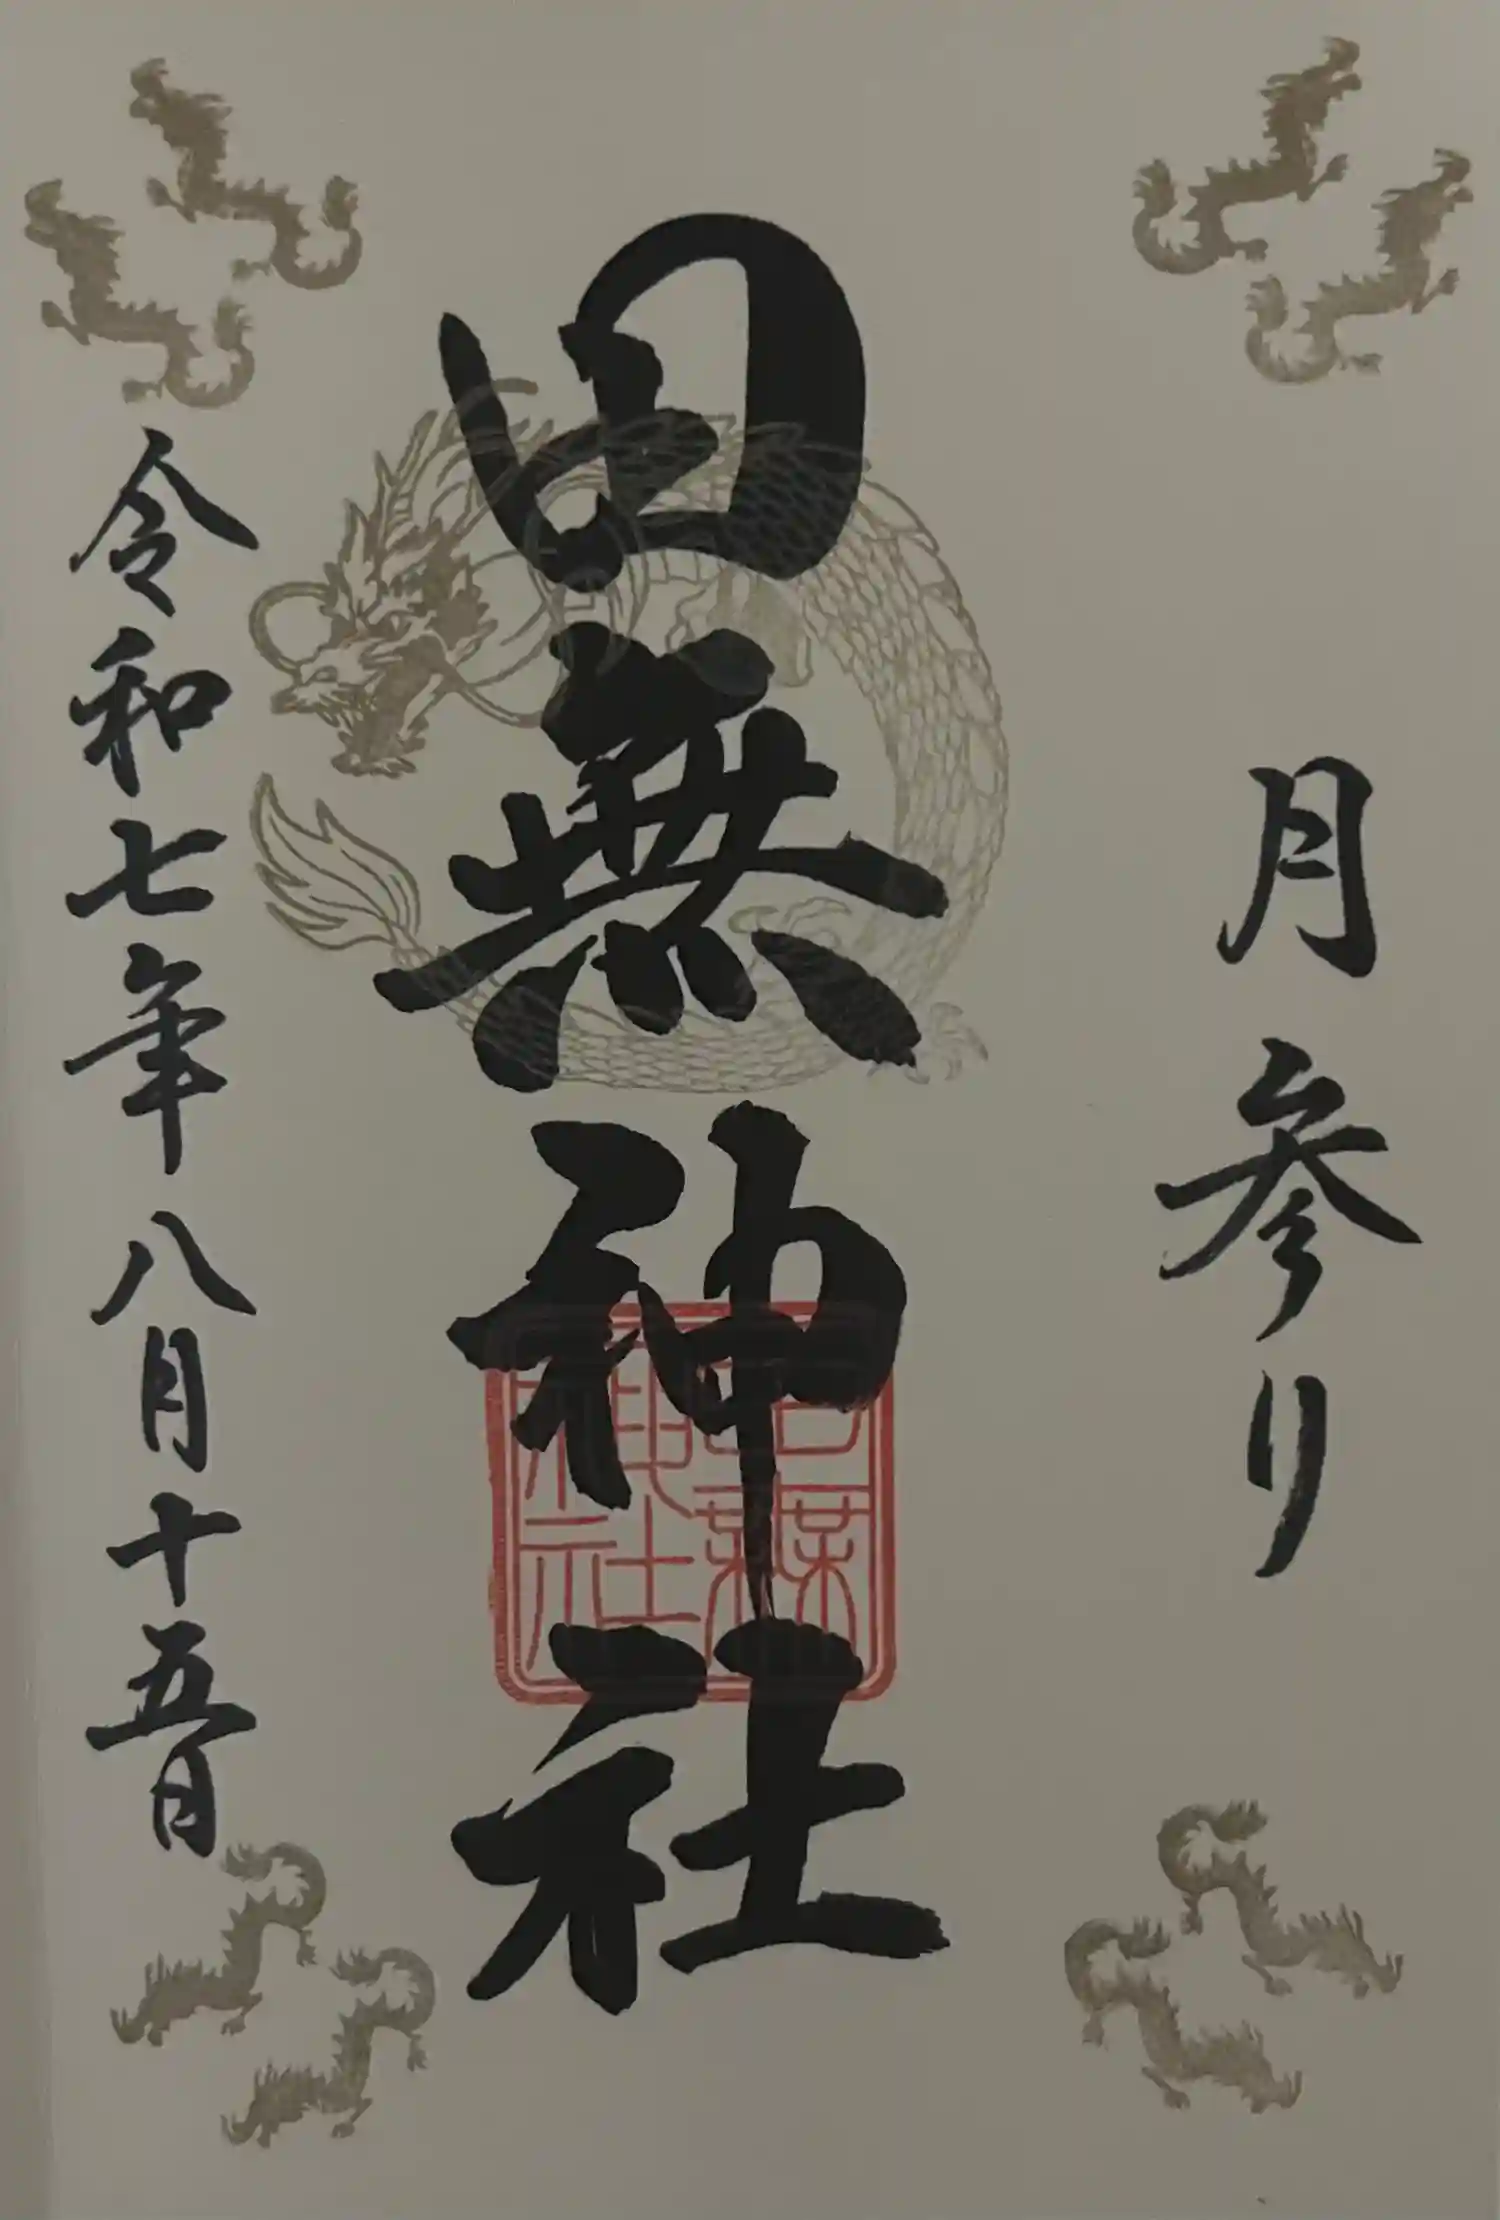 月参り
田無神社
田無神社
令和七年八月十五日